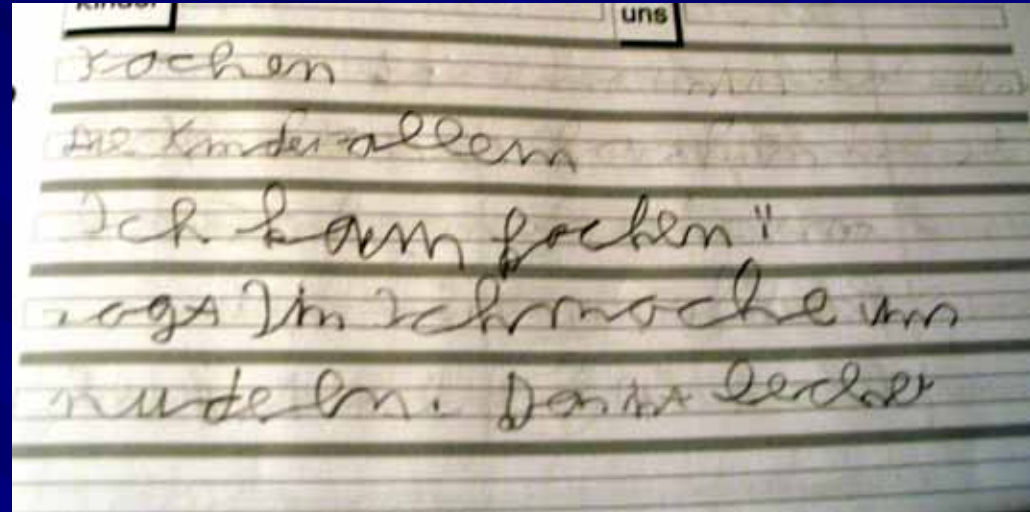 kinder uns
kochen
die Kinder allein
Ich kann kochen"
sagt Tim Ich mache un
nudeln. Das ist lecker